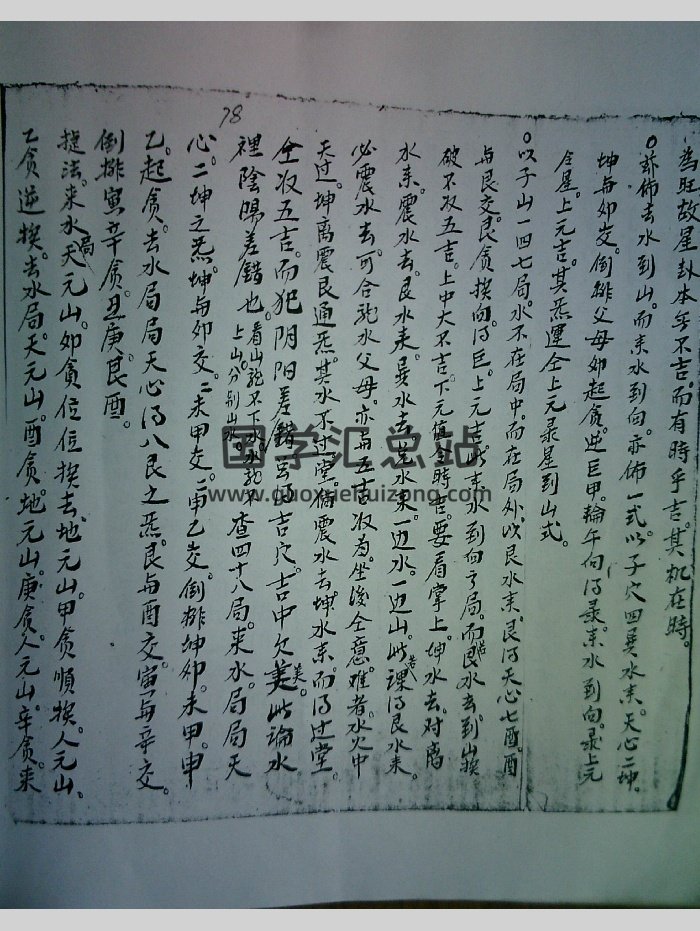 為旺故星卦本無不吉而有時乎吉其机在時。
○茲佈去水到山。而來水到向。亦佈一式。以子穴四巽水來。天心二坤。
坤与卯交。倒排父母卯起貪。逆巨甲。輪午向得彔。來水到向。彔上元
令星。上元吉。其炁運全上元彔星到山式。
○以子山一四七局。水不在局中。而在局外。以艮水來。艮得天心七酉。酉
与艮交。艮貪挨向得巨。上元吉。此來水到向之局。而艮水去到山挨
破不收五吉。上中大不吉。下元值令時吉。要看掌上。坤水去。对离
水來。震水去。艮水來。巽水去。兌水來。一边水。一边山。此課得艮水來。
必震水去。可合龍水父母。亦与五吉收為。坐後全意。难者水火中
天过。坤离震艮通炁。其水不过堂。偏震水去。坤水來。而得过堂。
全收五吉。而犯阴阳差錯。雖吉穴。吉中欠美。此論水
裡陰陽差錯也。看山龍不下水。水龍不上山。分别山水 查四十八局。來水局局天
心。二坤之炁。坤与卯交。二未甲交。二申乙交。倒排坤卯。未甲。申
乙。起貪。去水局局天心得八艮之炁。艮与酉交。寅与辛交。
倒排寅辛貪。丑庚。艮酉。
捷法。來水局天元山。卯貪位位挨去。地元山。甲貪順挨。人元山。
乙貪逆挨。去水局。天元山。酉貪。地元山。庚貪。人元山。辛貪。來
78
国学汇总站
www.guoxuehuizong.com